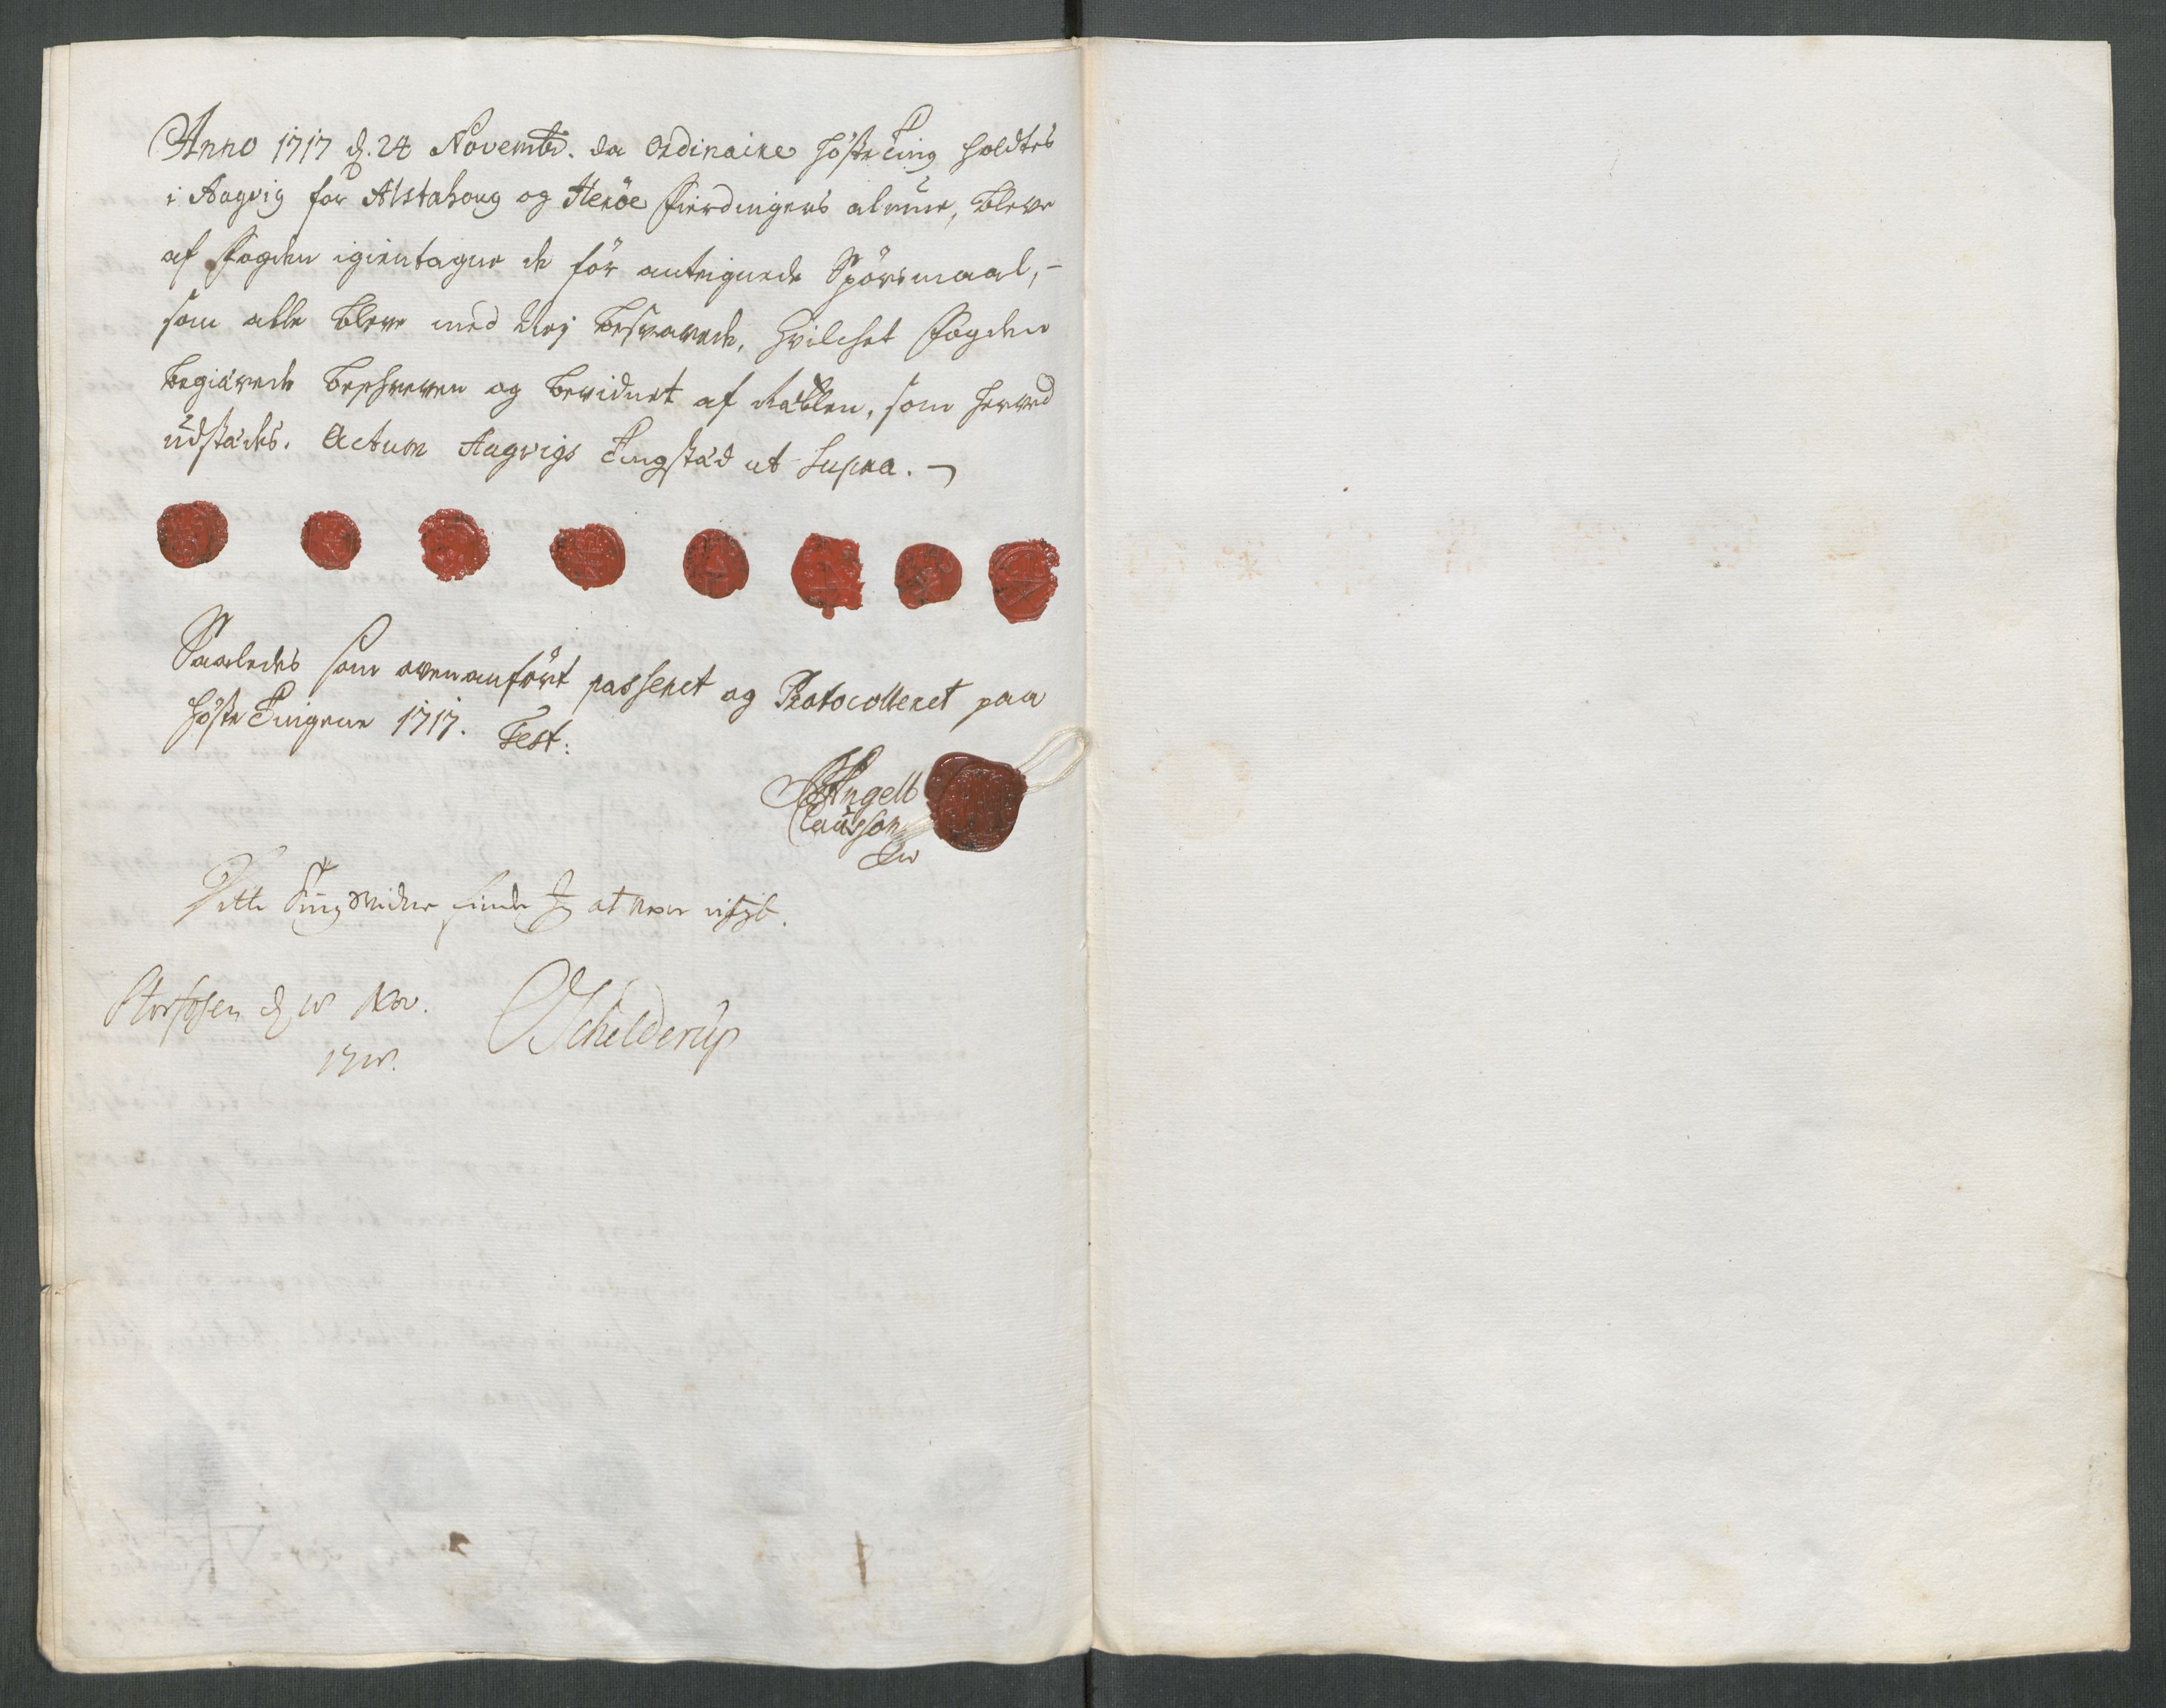 Anno 1717 d. 24 Novembr. da Ordinaire HösteTing holdtes
i Aagvig for Alstahoug og Heröe Fierdinger almue, bleve
af Fogden igientagne de för antegnede Spörsmaal,-
som alle bleve med Nej besvarede, hvilchet Fogden
begiærede beschreven og bevidnet af Retten, som herved
udstædes. Actum Aagvigs Tingstæd ut Supra.
Saaledes som ovenanfört passeret og Protocolleret paa
HösteTingene 1717. Test:
Angell
Clausson
Dette Tingswidne finder Jeg at være rigtigt.
d Nov.
Schelderup